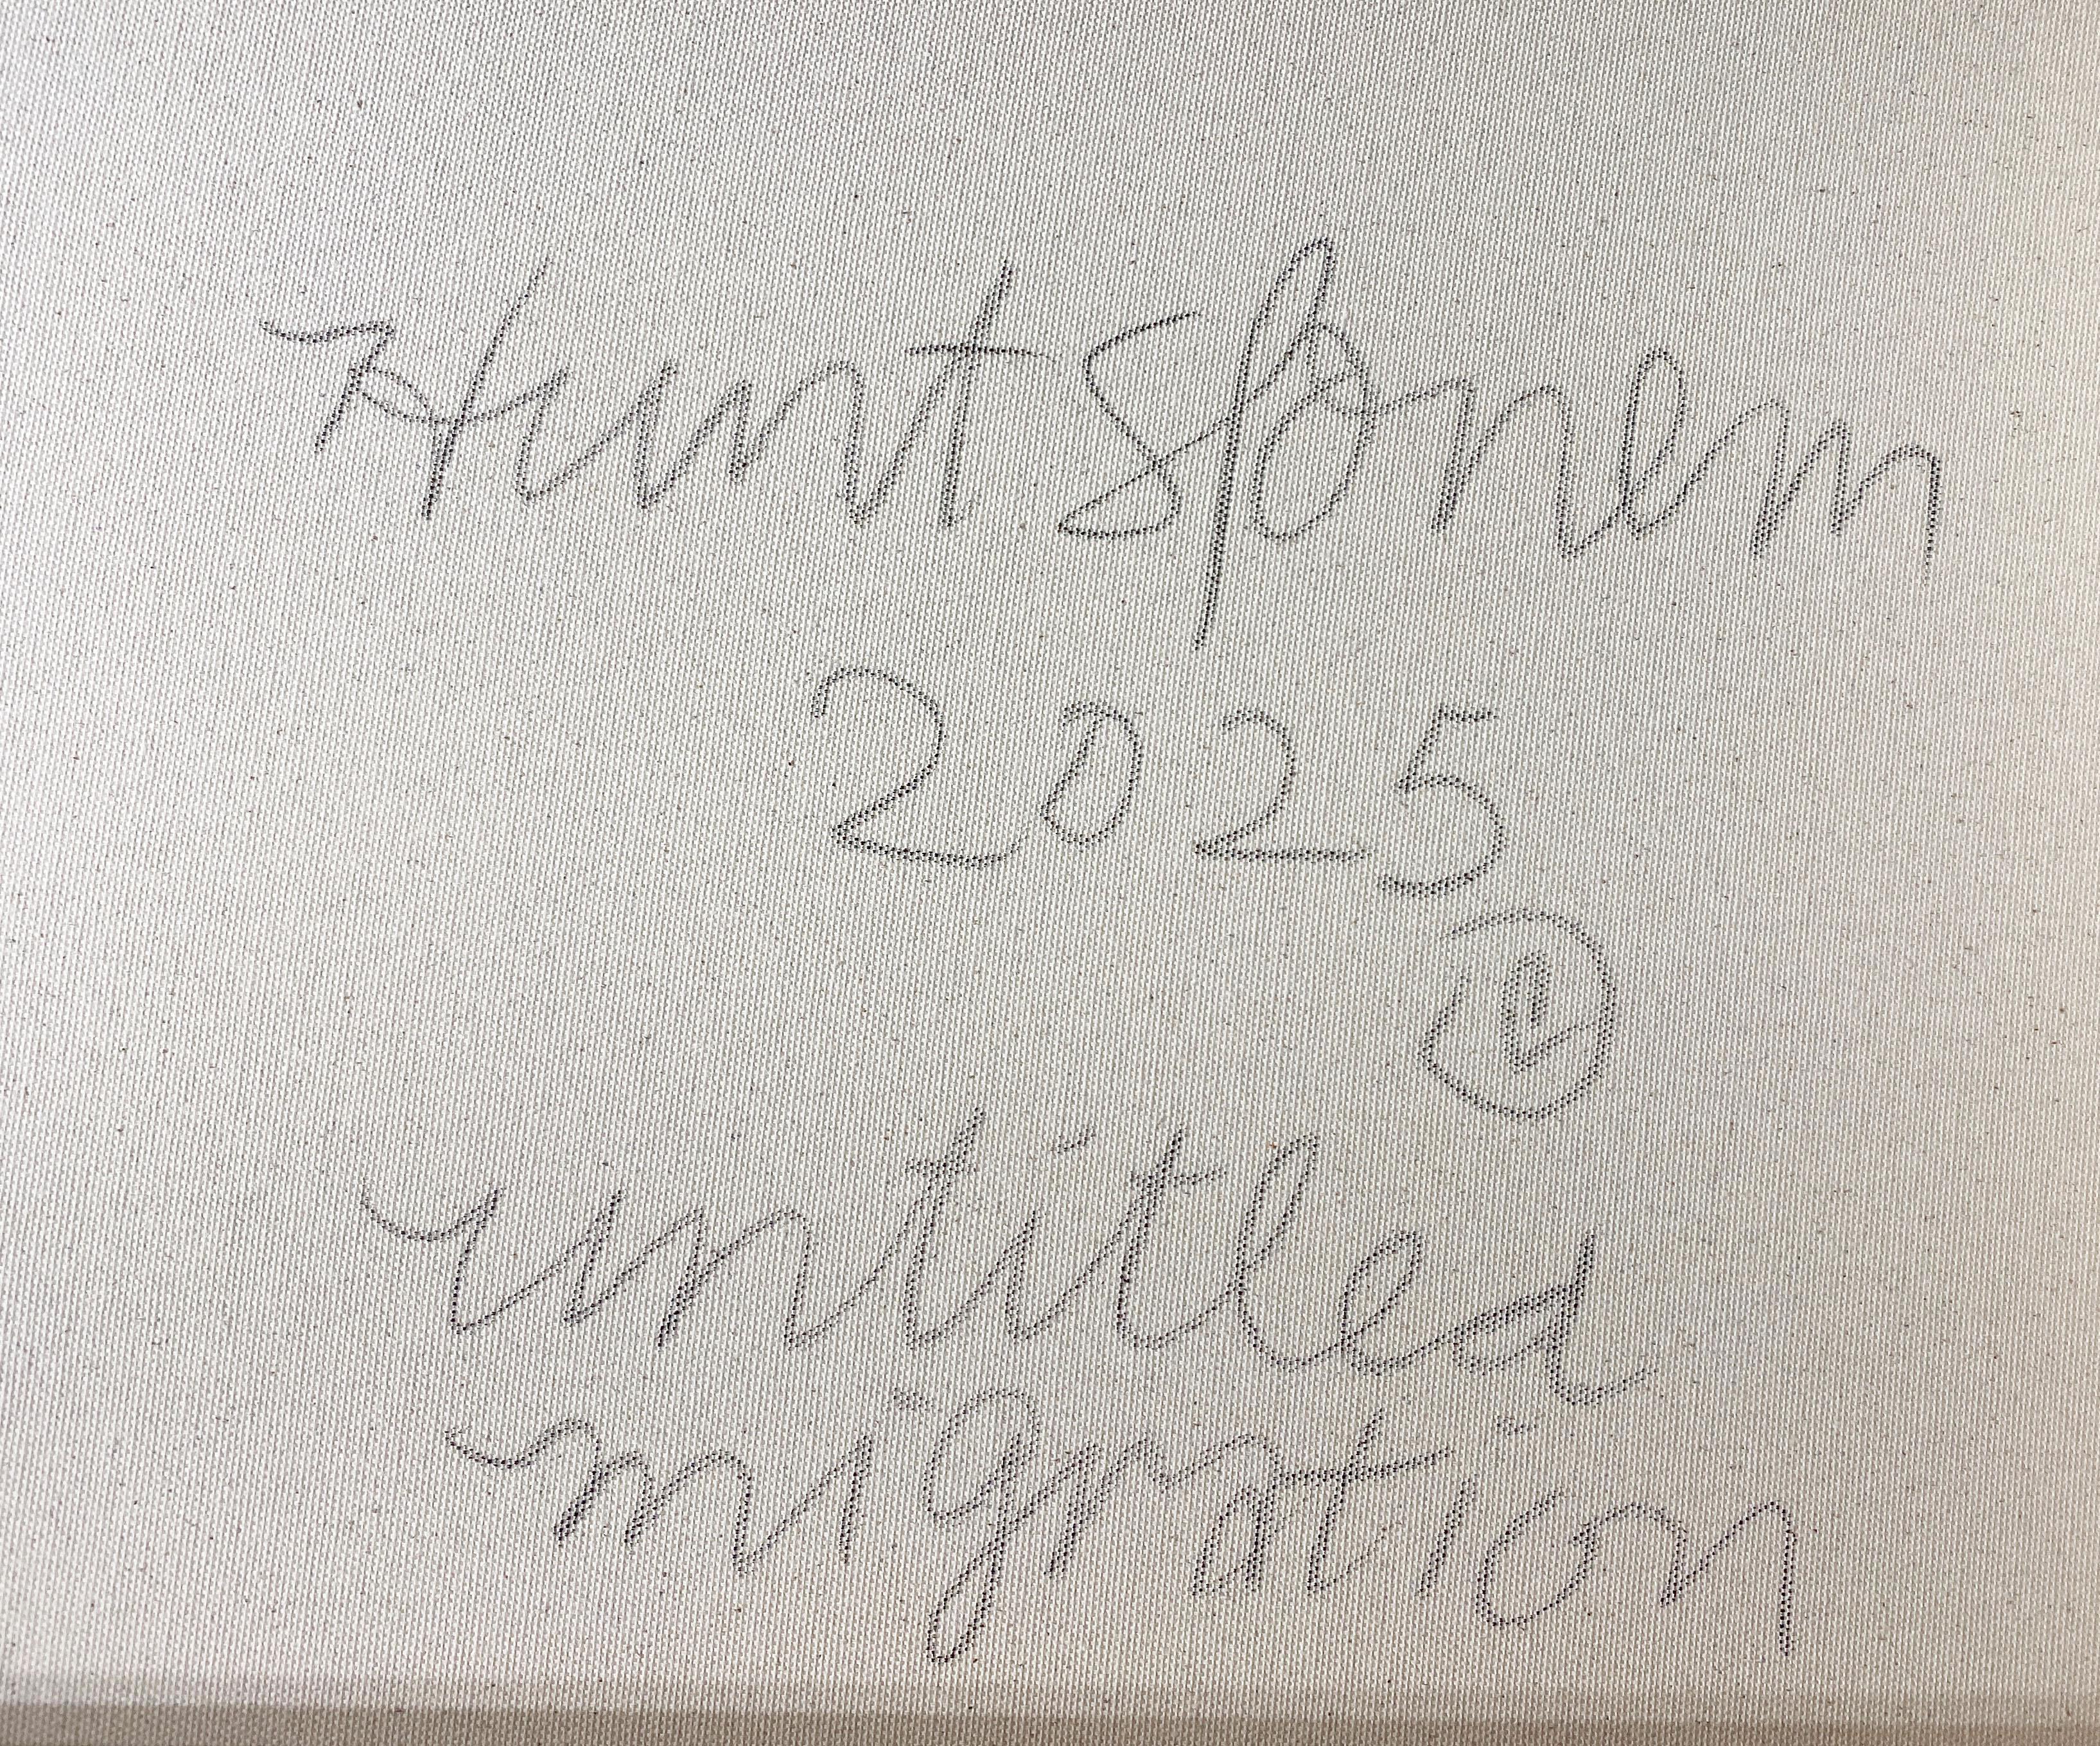 Hunt Slonem
2025
©
untitled
migration